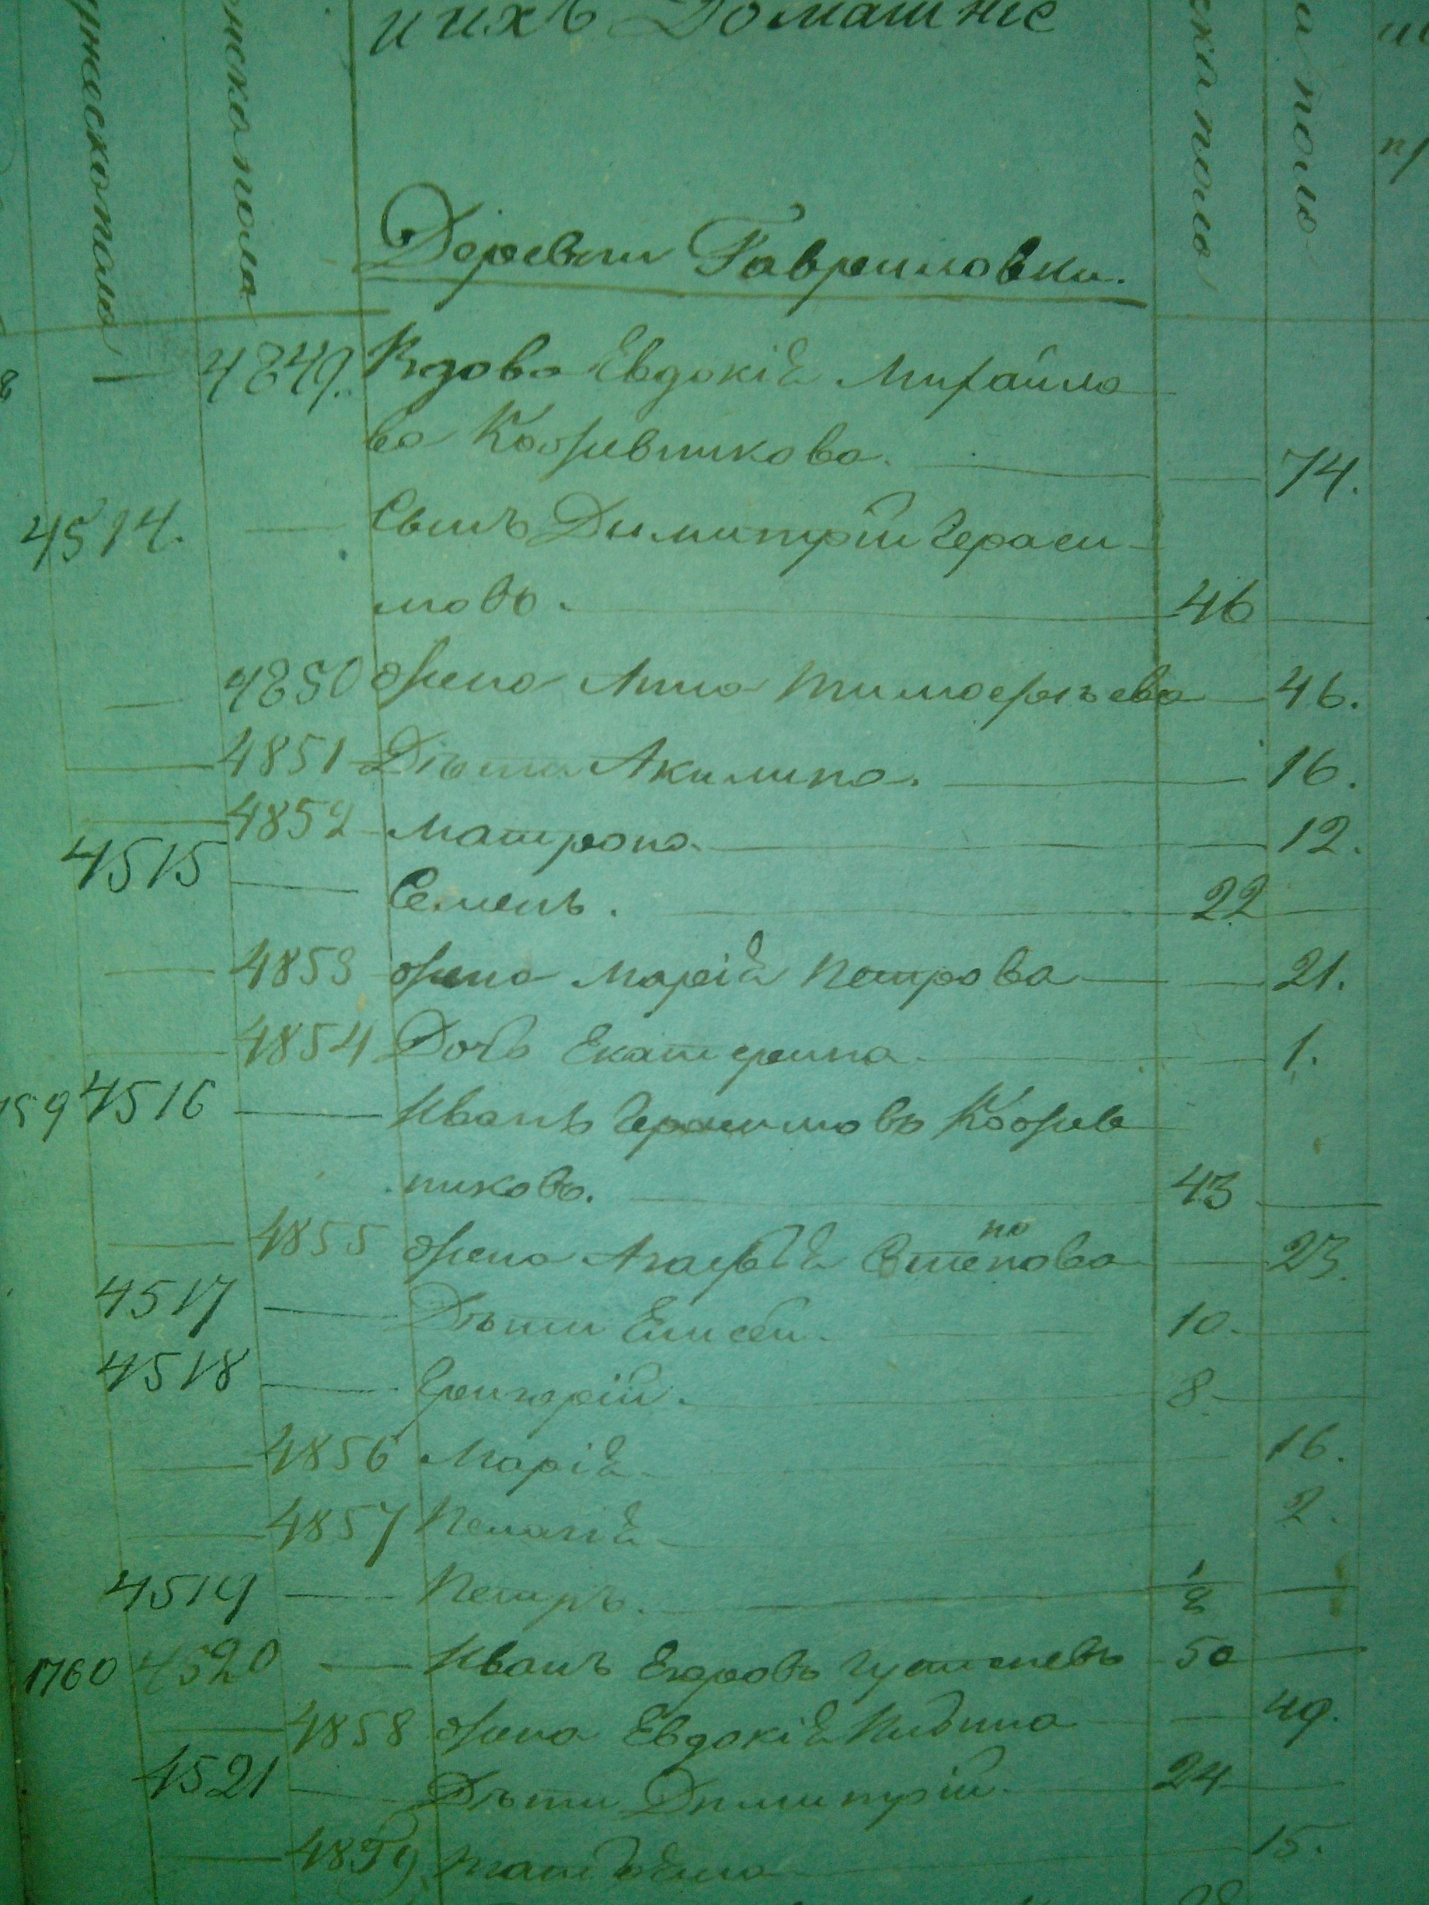 и ихъ Домашніе
мужеска пола
женска пола
ска полу
полу
Деревни Гавриловки.
— 4849. Вдова Евдокія Михайло
ва Кожевникова. — 74.
4514. — Сынъ Димитрій Гераси
мовъ. — 46 —
— 4850 Жена Анна Тимофѣева — 46.
— 4851 Дѣти Акилина. — 16.
— 4852 Матрона — 12.
4515 — Семенъ. — 22 —
— 4853 Жена Марія Петрова — 21.
— 4854 Дочь Екатерина — 1.
4516 — Иванъ Герасимовъ Кожев
никовъ. — 43 —
— 4855 Жена Агафія Степанова — 23.
4517 — Дѣти Елисей — 10. —
4518 — Григорій. — 8 —
— 4856 Марія — 16.
— 4857 Пелагія — 2.
4519 — Петръ. — 1/2 —
1760 4520 — Иванъ Егоровъ — 50 —
— 4858 Жена Евдокія — 49.
4521 — Дѣти Димитрій — 24 —
— 4859 Татьяна — 15.